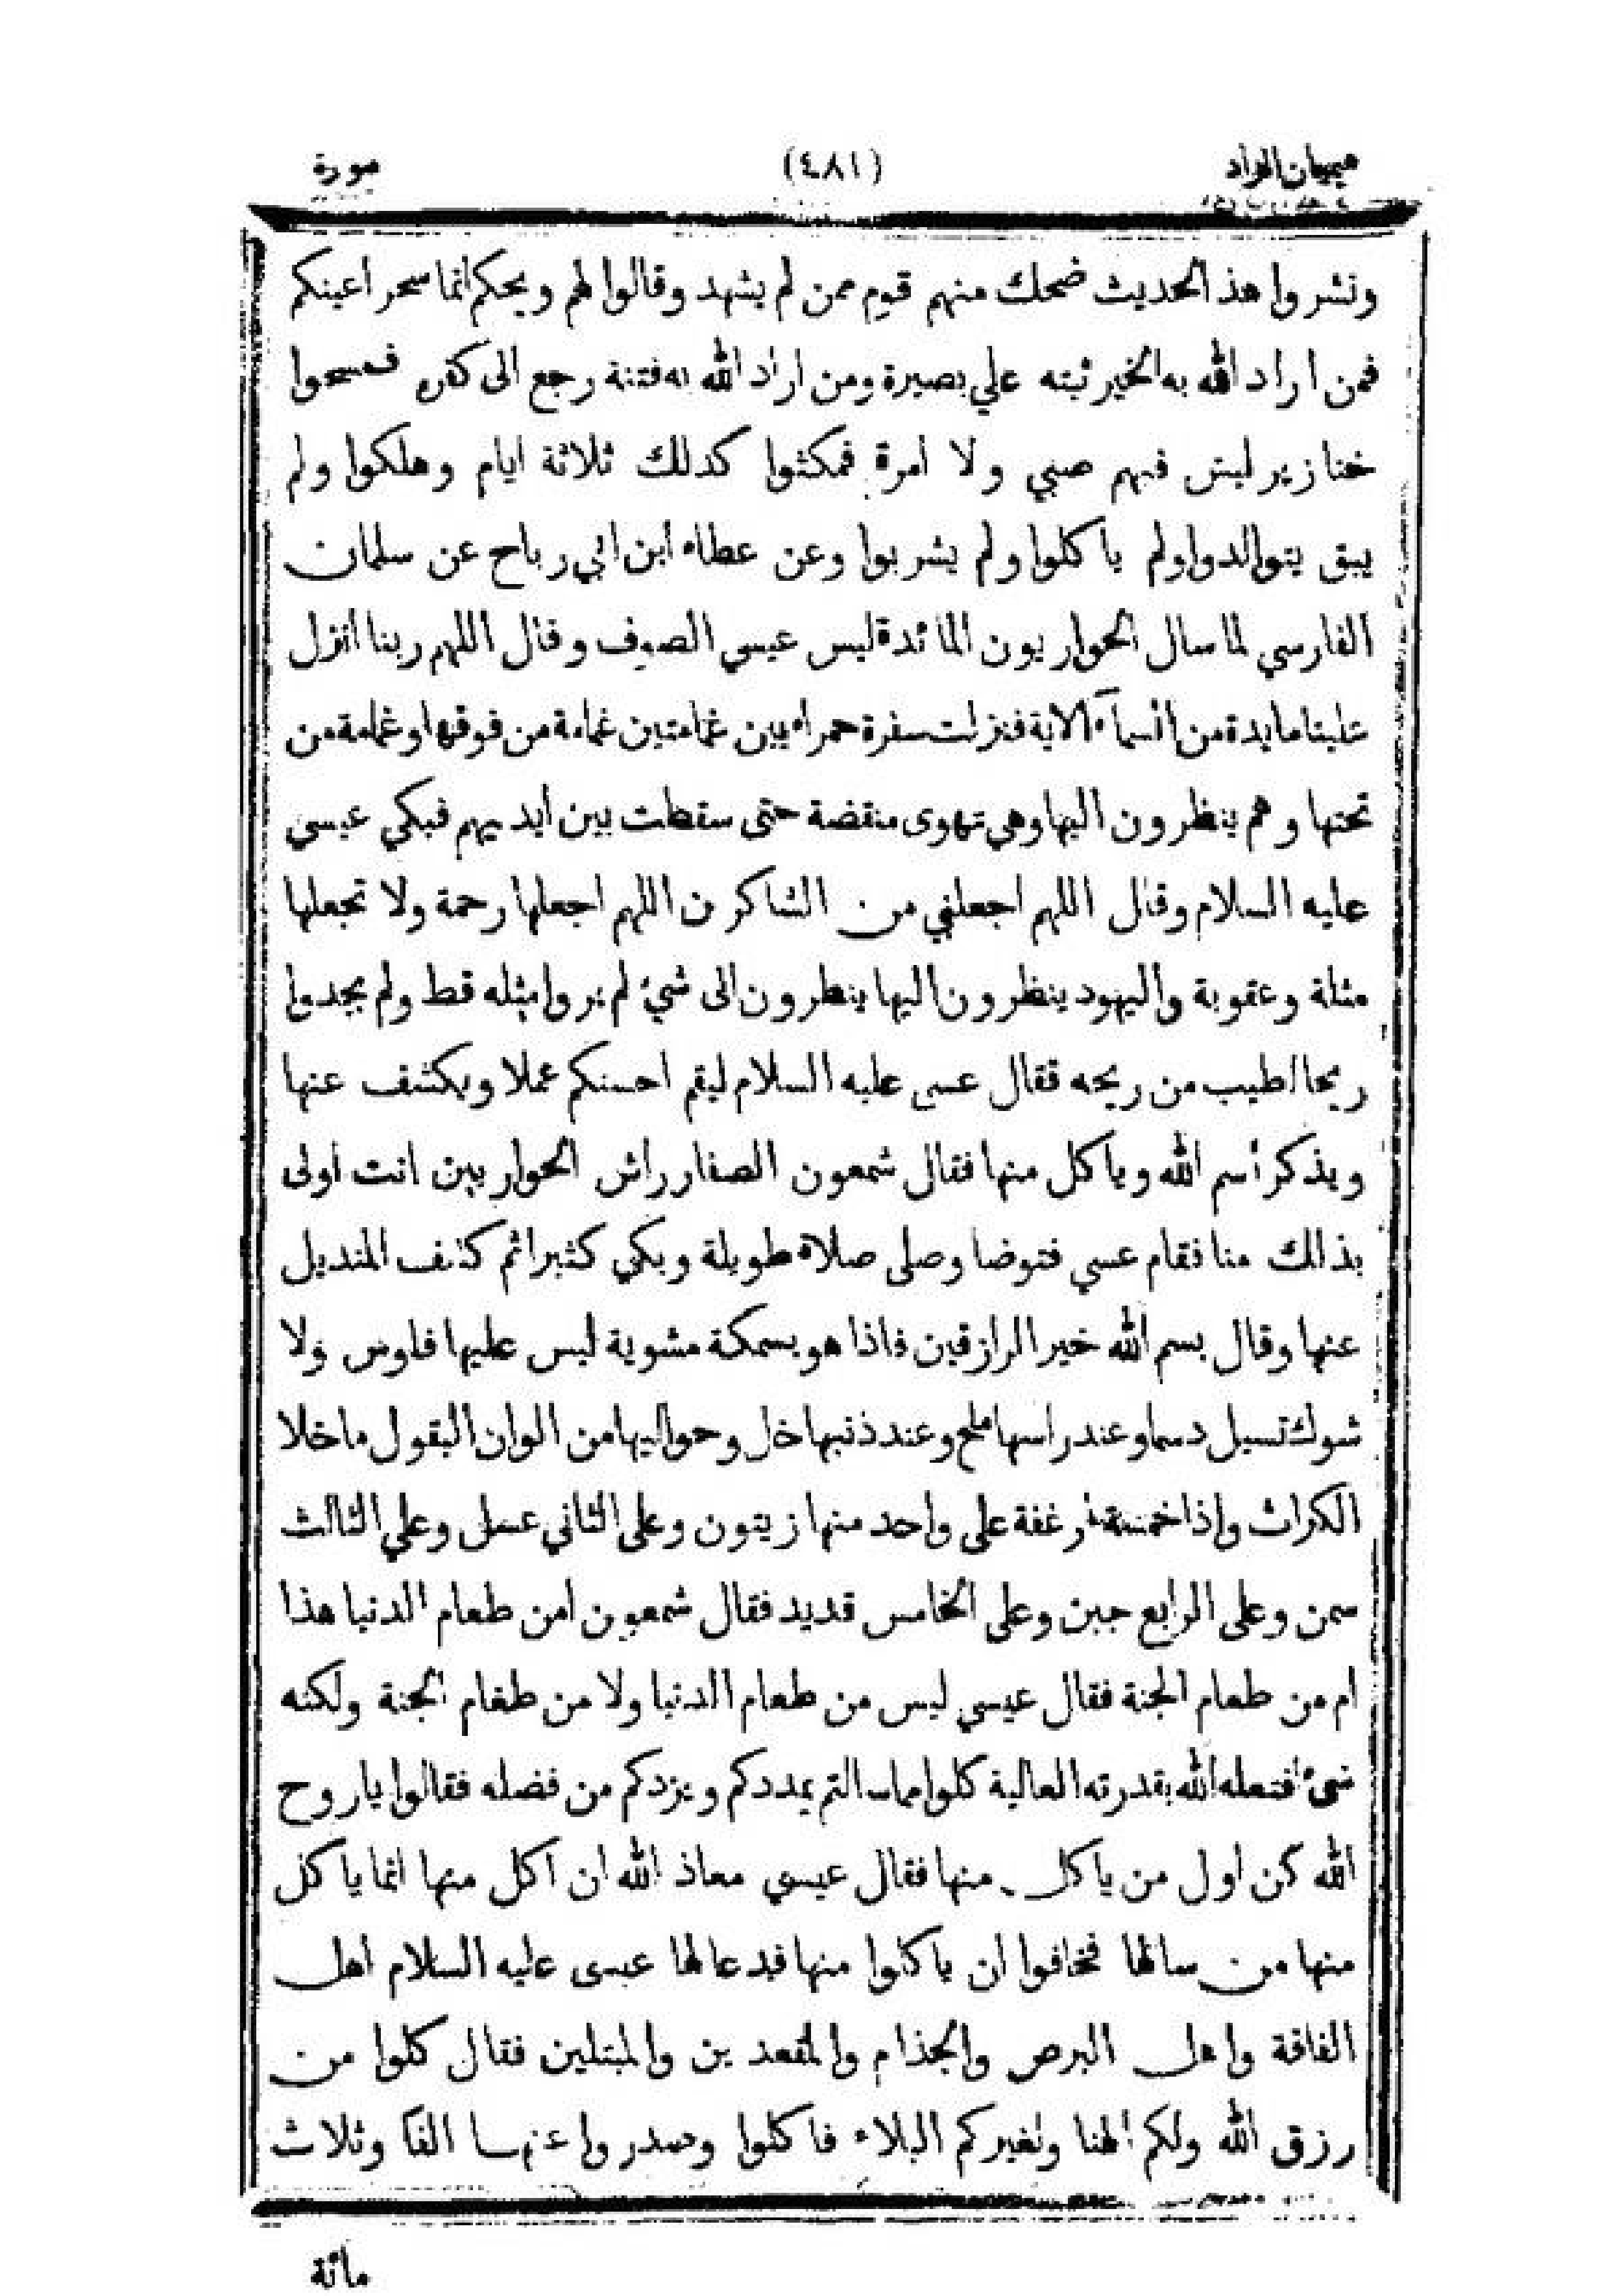 هيميان الزاد (٤٨١) سورة
ونشروا هذ الحديث ضحك منهم قوم ممن لم يشهد وقالوا لهم ويحكم انما سحر اعينكم
فمن اراد الله به الخير ثبته علي بصيرة ومن اراد الله به فتنة رجع الى كفره فمسحوا
خنازير ليس فيهم صبي ولا امرة فمكثوا كدلك ثلاثة ايام وهلكوا ولم
يبق يتوالدوا ولم ياكلوا ولم يشربوا وعن عطاء ابن ابي رباح عن سلمان
الفارسي لما سال الحواريون المائدة لبس عيسي الصوف وقال اللهم ربنا انزل
علينا مايدة من السماء الاية فنزلت سفرة حمراء بين غمامتين غمامة من فوقها وغمامة من
تحتها وهم ينظرون اليها وهي تهوى منقضة حتى سقطت بين ايدييهم فبكي عيسى
عليه السلام وقال اللهم اجعلني من الشاكرن اللهم اجعلها رحمة ولا تجعلها
مثلة وعقوبة واليهود ينظرون اليها ينطرون الى شيء لم يروا مثله قط ولم يجدوا
ريحا اطيب من ريحه فقال عسى عليه السلام ليقم احسنكم عملا ويكشف عنها
ويذكر اسم الله وياكل منها فقال شمعون الصفار راس الحواريين انت اولى
بذالك منا فقام عسي فتوضا وصلى صلاة طويلة وبكي كثيرا ثم كشف المنديل
عنها وقال بسم الله خير الرازقين فاذا هو بسمكة مشوية ليس عليها فلوس ولا
شوك تسيل دسما وعند راسها ملح وعند ذنبها خل وحواليها من الوان البقول ما خلا
الكراث واذا خمسة ارغفة على واحد منها زيتون وعلى الثاني عسل وعلي الثالث
سمن وعلى الرابع جبن وعلى الخامس قديد فقال شمعون امن طعام الدنيا هذا
ام من طعام الجنة فقال عيسي ليس من طعام الدنيا ولا من طعام الجنة ولكنه
شيء افتعله الله بقدرته العالية كلوا مما سالتم يمددكم ويزدكم من فضله فقالوا يا روح
الله كن اول من ياكل منها فقال عيسي معاذ الله ان آكل منها انما ياكل
منها من سالها فخافوا ان ياكلوا منها فدعا لها عيسى عليه السلام اهل
الفاقة واهل البرص والجذام والمقعدين والمبتلين فقال كلوا من
رزق الله ولكم الهنا ولغيركم البلاء فاكلوا وصدروا عنها الفا وثلاث
مائة